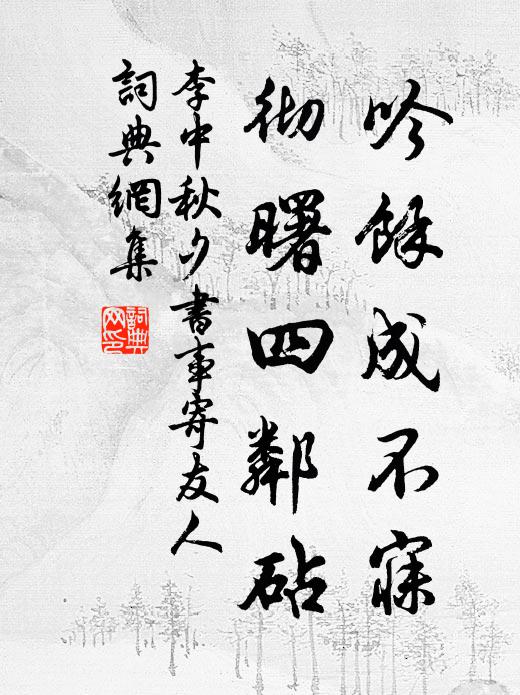 吟餘成不寐
彻曙四鄰砧
李中秋夕書事寄友人
詞典網集
詞典
网印